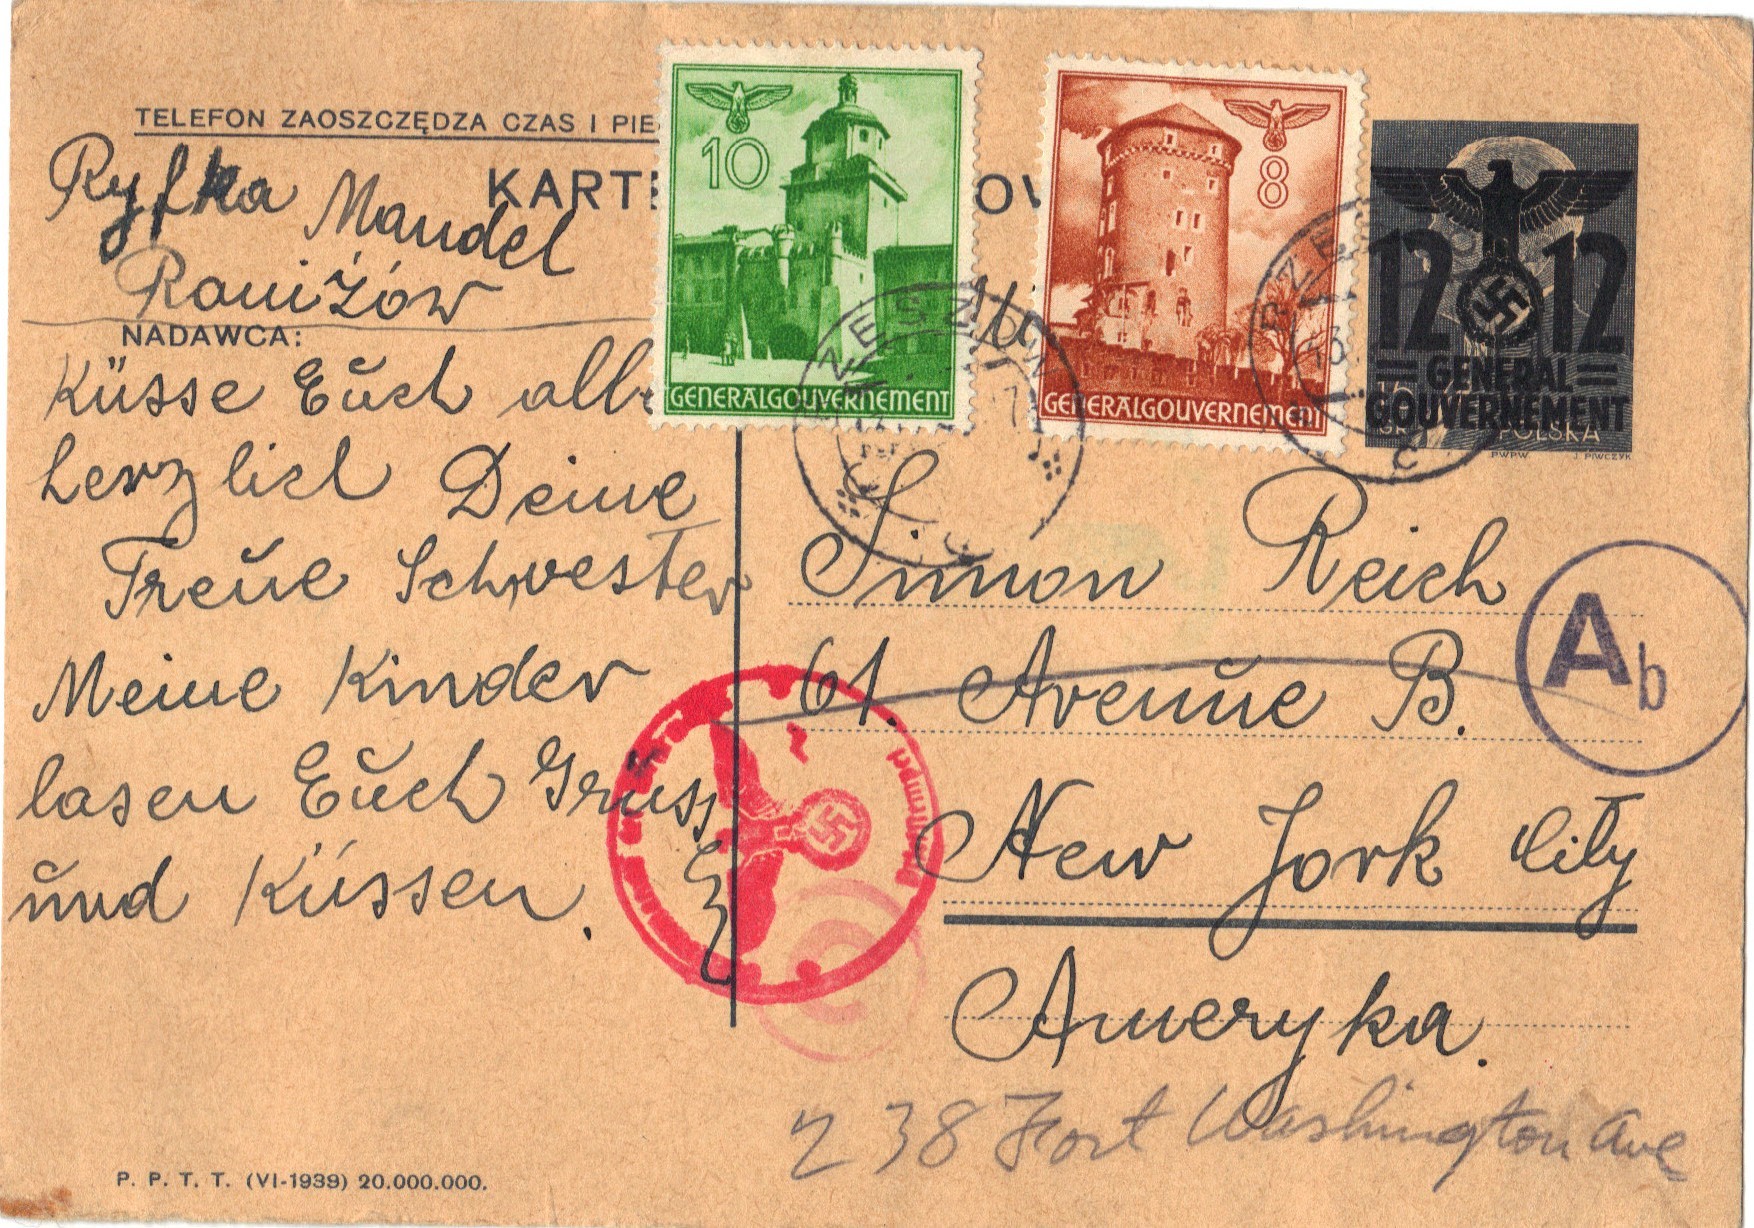 TELEFON ZAOSZCZĘDZA CZAS I PIE
KART
Ryfka Mandel
Raniżów
NADAWCA:
Küsse Euch alle
herzlich Deine
Treue Schwester
Meine Kinder
lasen Euch Gruss
und Küssen.
P. P. T. T. (VI-1939) 20.000.000.
10
GENERALGOUVERNEMENT
8
GENERALGOUVERNEMENT
12 12
GENERAL
GOUVERNEMENT
POLSKA
PWPW. J. PIWCZYK
RZESZÓW
RZES
C
Simon Reich
61. Avenue B.
New Jork City
Ameryka.
238 Fort Washington Ave
Ab